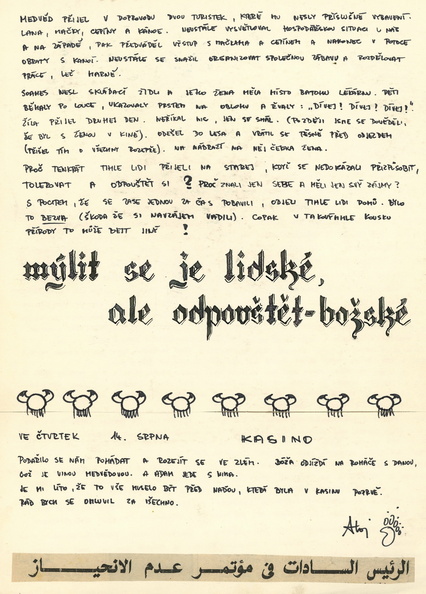 MEDVĚD PŘIJEL V DOPROVODU DVOU TURISTEK, KTERÉ MU NESLY PŘÍSLUŠNÉ VYBAVENÍ.
LANA, MAČKY, CEPÍNY A KÁNOE. NEUSTÁLE VYSVĚTLOVAL HOSPODÁŘSKOU SITUACI U NÁS
A NA ZÁPADĚ, PAK PŘEDVÁDĚL VÝSTUP S MAČKAMA A CEPÍNEM A NAKONEC V POTOCE
OBRATY S KANOÍ. NEUSTÁLE SE SNAŽIL ORGANIZOVAT SPOLEČNOU ZÁBAVU A ROZDĚLOVAT
PRÁCE, LEČ MARNĚ.
NESL SKLÁDACÍ ŽIDLI A JEHO ŽENA MĚLA MÍSTO BATOHU LÉKÁRNU. DĚTI
BĚHALY PO LOUCE, UKAZOVALY PRSTEM NA OBLOHU A ŘVALY: „DÍVEJ! DÍVEJ! DÍVEJ!"
ŽÍLA PŘIJEL DRUHEJ DEN. NEŘÍKAL NIC, JEN SE SMÁL. (POZDĚJI JSME SE DOVĚDĚLI,
ŽE BYL S ŽENOU V KINĚ). ODEŠEL DO LESA A VRÁTIL SE TĚSNĚ PŘED ODJEZDEM
(TĚŠEL TÍM O VŠECHNY). NA NÁDRAŽÍ NA NĚJ ČEKALA ŽENA.
PROČ TENKRÁT TIHLE LIDI PŘIJELI NA STAREJ, KDYŽ SE NEDOKÁZALI PŘIZPŮSOBIT,
TOLEROVAT A ODPOUŠTĚT SI ? PROČ ZNALI JEN SEBE A MĚLI JEN SVÝ ZÁJMY?
S POCITEM, ŽE SE ZASE JEDNOU ZA ČAS POBAVILI, ODJELI TIHLE LIDI DOMŮ. BYLO
TO BEZVA (ŠKODA ŽE SI NAVZÁJEM VADILI). COPAK V TAKOVÝMHLE KOUSKU
PŘÍRODY TO MŮŽE BEJT JINÝ !
mýlit se je lidské,
ale odpovštět-božské
VE ČTVRTEK 14. SRPNA KASINO
PODAŘILO SE NÁM POHÁDAT A ROZEJÍT SE VE ZLÉM. ODJÍŽDÍ NA S DANOU,
COŽ JE VINOU MEDVĚDOVOU. A ADAM JEDE S NIMA.
JE MI LÍTO, ŽE TO VŠE MUSELO BÝT PŘED NAĎOU, KTERÁ BYLA V KASINU POPRVÉ.
RÁD BYCH SE OMLUVIL ZA VŠECHNO.
الرئيس السادات فى مؤتمر عدم الانحياز